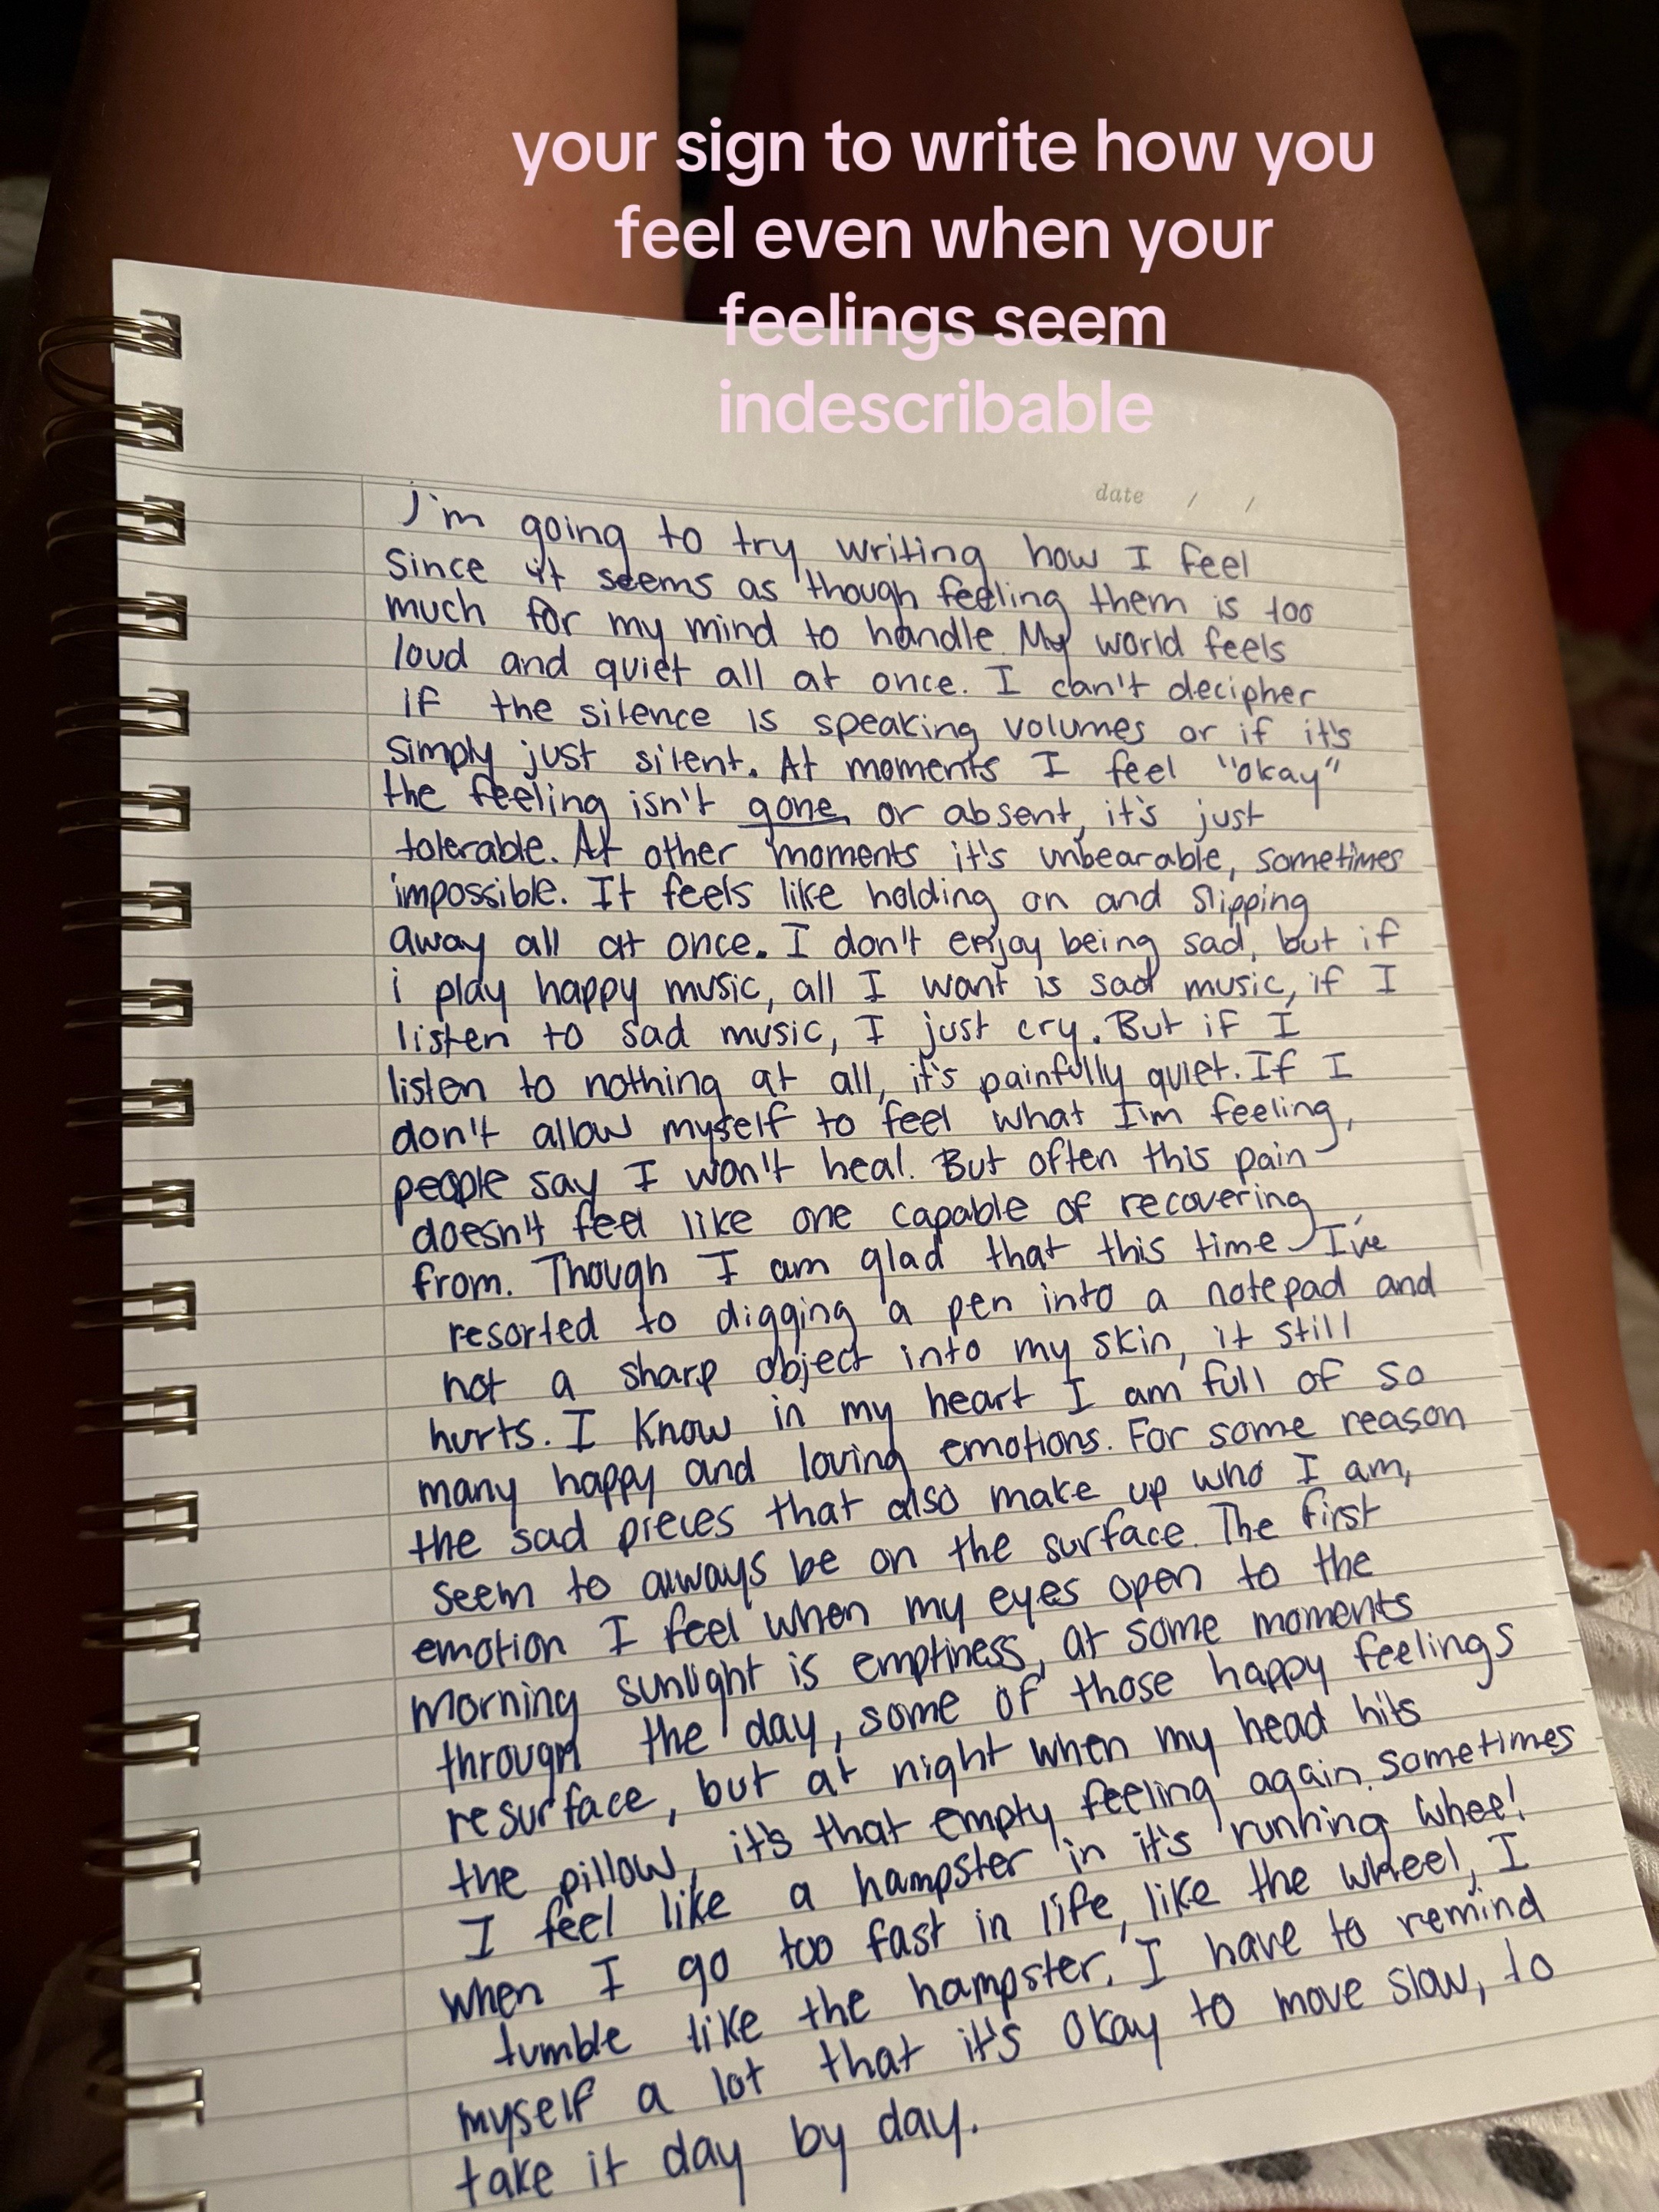 your sign to write how you
feel even when your
feelings seem
indescribable
date / /
i'm going to try writing how I feel
Since it seems as though feeling them is too
much for my mind to handle. My world feels
loud and quiet all at once. I can't decipher
if the silence is speaking volumes or if it's
simply just silent. At moments I feel "okay"
the feeling isn't gone, or absent, it's just
tolerable. At other moments it's unbearable, sometimes
impossible. It feels like holding on and slipping
away all at once. I don't enjoy being sad, but if
i play happy music, all I want is sad music, if I
listen to sad music, I just cry. But if I
listen to nothing at all, it's painfully quiet. If I
don't allow myself to feel what I'm feeling,
people say I won't heal. But often this pain
doesn't feel like one capable of recovering
from. Though I am glad that this time I've
resorted to digging a pen into a notepad and
not a sharp object into my skin, it still
hurts. I know in my heart I am full of so
many happy and loving emotions. For some reason
the sad pieces that also make up who I am,
seem to always be on the surface. The first
emotion I feel when my eyes open to the
morning sunlight is emptiness, at some moments
through the day, some of those happy feelings
resurface, but at night when my head hits
the pillow, it's that empty feeling again. Sometimes
I feel like a hampster in it's running wheel
when I go too fast in life, like the wheel, I
tumble like the hampster. I have to remind
myself a lot that it's okay to move slow, to
take it day by day.